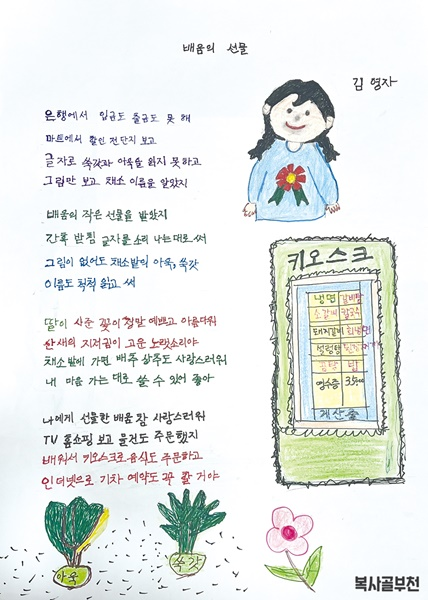 배움의 선물
김 영자
은행에서 입금도 출금도 못 해
마트에서 할인 전단지 보고
글자로 쑥갓과 아욱을 읽지 못하고
그림만 보고 채소 이름을 알았지
배움의 작은 선물을 받았지
간혹 받침 글자를 소리 나는대로 써
그림이 없어도 채소밭의 아욱, 쑥갓
이름도 척척 읽고 써
딸이 사준 꽃이 정말 예쁘고 아름다워
산새의 지저귐이 고운 노랫소리야
채소밭에 가면 배추 상추도 사랑스러워
내 마음 가는 대로 쓸 수 있어 좋아
나에게 선물한 배움 참 사랑스러워
TV 홈쇼핑 보고 물건도 주문했지
배워서 키오스크로 음식도 주문하고
인터넷으로 기차 예약도 꼭 할 거야
키오스크
냉면 갈비탕
소갈비 칼국수
돼지갈비
설렁탕
곰탕 밥
영수증
계산중
아욱
쑥갓
복사골부천